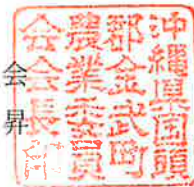 沖縄県国頭
郡金武町
農業委員
会会長
会
昇